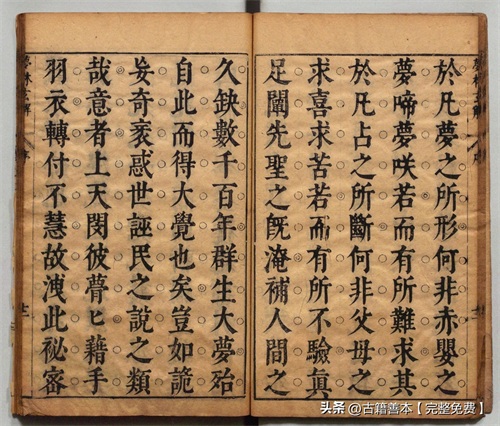 於凡夢之所形何非赤嬰之
夢啼夢咲若而有所難求其
於凡占之所斷何非父母之
求喜求苦若而有所不驗眞
足闡先聖之旣淹補人間之
久鈌數千百年群生大夢殆
自此而得大覺也矣豈如詭
妄奇衺惑世誣民之說之類
哉意者上天閔彼瞢匕藉手
羽衣轉付不慧故洩此祕密
夢林玄解
序
头条 @古籍善本【完整免费】